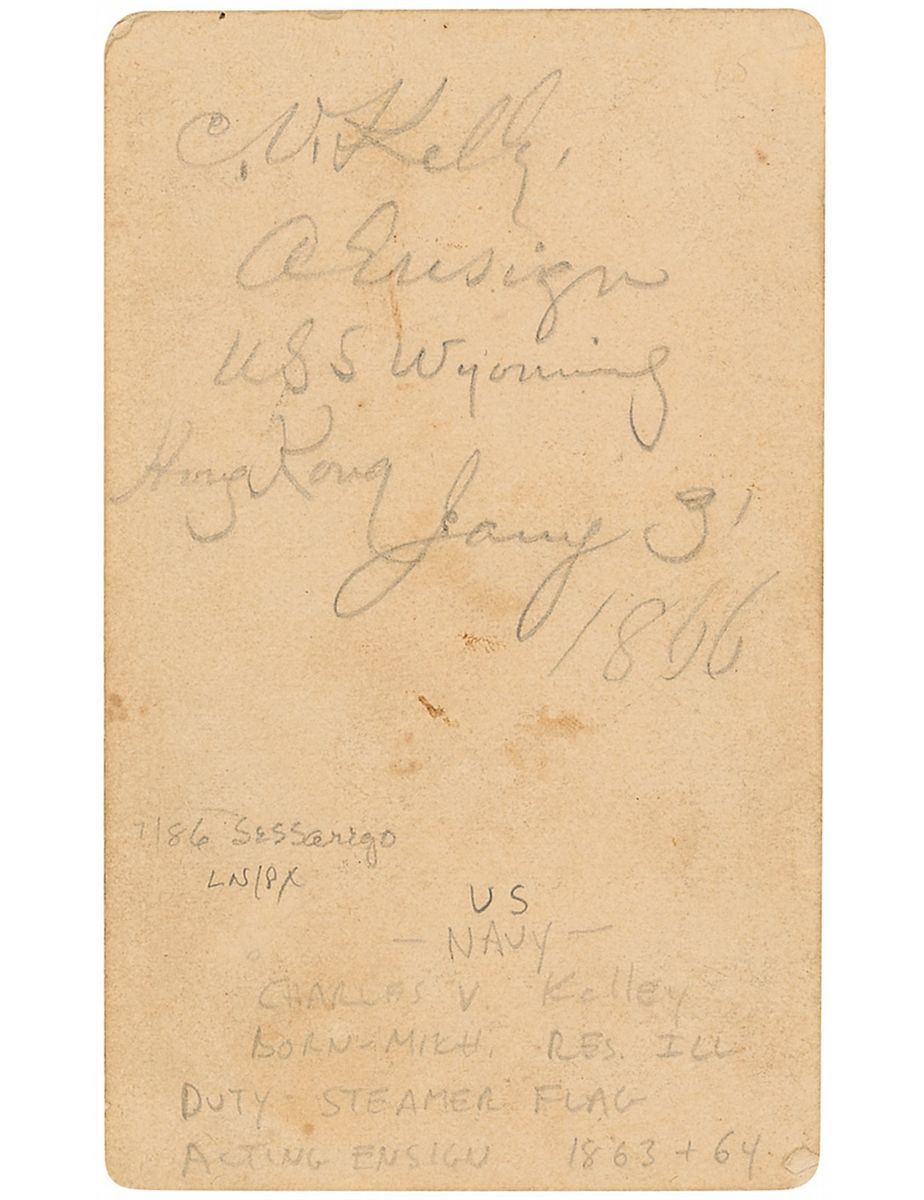 C. V. Kelly,
A Ensign
USS Wyoming
Hong Kong Jany 3'
1866
7/86
LN/PX
US
— NAVY —
CHARLES V Kelley
BORN - MICH. RES. ILL
DUTY STEAMER FLAG
ACTING ENSIGN 1863 + 64